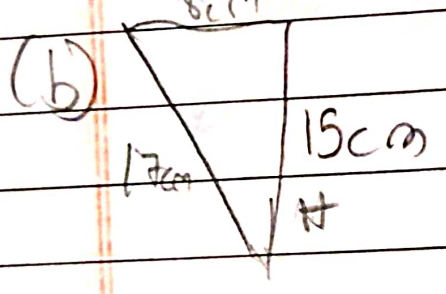 8cm
(b)
15cm
17cm
H